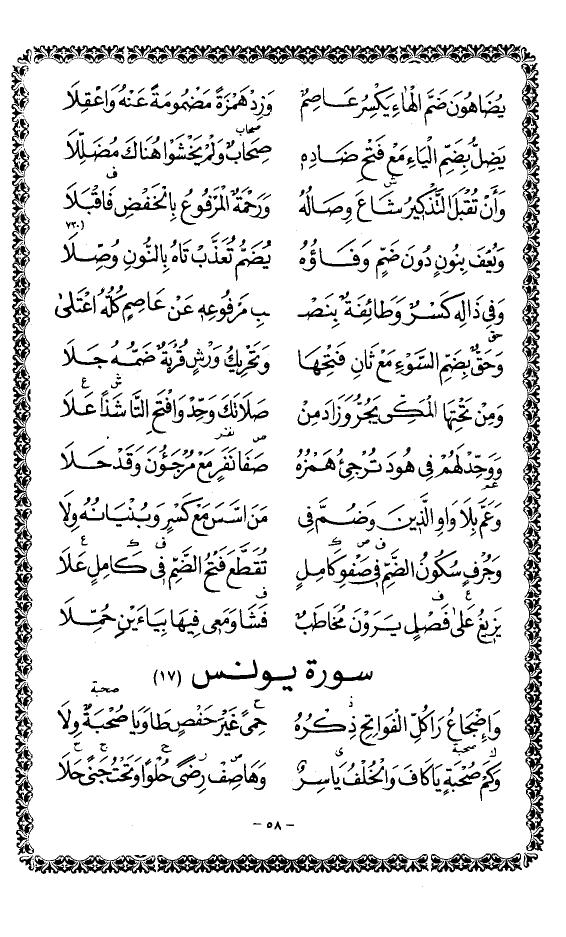 يُضَاهُونَ ضَمَّ الْهَاءِ يَكْسِرُ عَاصِمٌ وَزِدْ هَمْزَةً مَضْمُومَةً عَنْهُ وَاعْقِلَا
يَضِلُّ بِضَمِّ الْيَاءِ مَعَ فَتْحِ ضَادِهِ صِحَابٌ وَلَمْ يَخْشَوْا هُنَاكَ مُضَلِّلَا
وَأَنْ تُقْبَلَ التَّذْكِيرُ شَاعَ وِصَالُهُ وَرَحْمَةٌ الْمَرْفُوعُ بِالْخَفْضِ فَاقْبَلَا
(٧٣٠
وَيُعْفَ بِنُونٍ دُونَ ضَمٍّ وَفَاؤُهُ يُضَمُّ تُعَذَّبْ تَاهُ بِالنُّونِ وُصِّلَا
وَفِي ذَالِهِ كَسْرٌ وَطَائِفَةٌ بِنَصْـ ـبِ مَرْفُوعِهِ عَنْ عَاصِمٍ كُلُّهُ اعْتَلَى
وَحَقٌّ بِضَمِّ السَّوْءِ مَعَ ثَانِ فَتْحِهَا وَتَحْرِيكُ وَرْشٍ قُرْبَةٌ ضَمُّهُ جَلَا
وَمِنْ تَحْتِهَا الْمَكِّي يَجُرُّ وَزَادَ مِنْ صَلَاتَكَ وَحِّدْ وَافْتَحِ التَّا شَذًا عَلَا
وَوَحِّدْ لَهُمْ فِي هُودَ تُرْجِئُ هَمْزُهُ صَفَا نَفَرٍ مَعَ مُرْجَؤُنَ وَقَدْ حَلَا
وَعَمَّ بِلَا وَاوِ الَّذِينَ وَضُمَّ فِي مَنَ اسَّسَ مَعَ كَسْرٍ وَبُنْيَانُهُ وِلَا
وَجُرْفٍ سُكُونُ الضَّمِّ فِي صَفْوِ كَامِلٍ تُقَطَّعَ فَتْحُ الضَّمِّ فِي كَامِلٍ عَلَا
يَزِيغُ عَلَى فَصْلٍ يَرَوْنَ مُخَاطَبٌ فَشَا وَمَعِي فِيهَا بِيَاءَيْنِ حُمِّلَا
سورة يونس (١٧)
وَإِضْجَاعُ رَا كُلِّ الْفَوَاتِحِ ذِكْرُهُ حِمىً غَيْرَ حَفْصٍ طَاوَيَا صُحْبَةٌ وِلَا
وَكَمْ صُحْبَةٍ يَا كَافَ وَالْخُلْفُ يَاسِرٌ وَهَا صِفْ رِضىً حُلْوًا وَتَحْتَ جَنىً حَلَا
– ٥٨ –